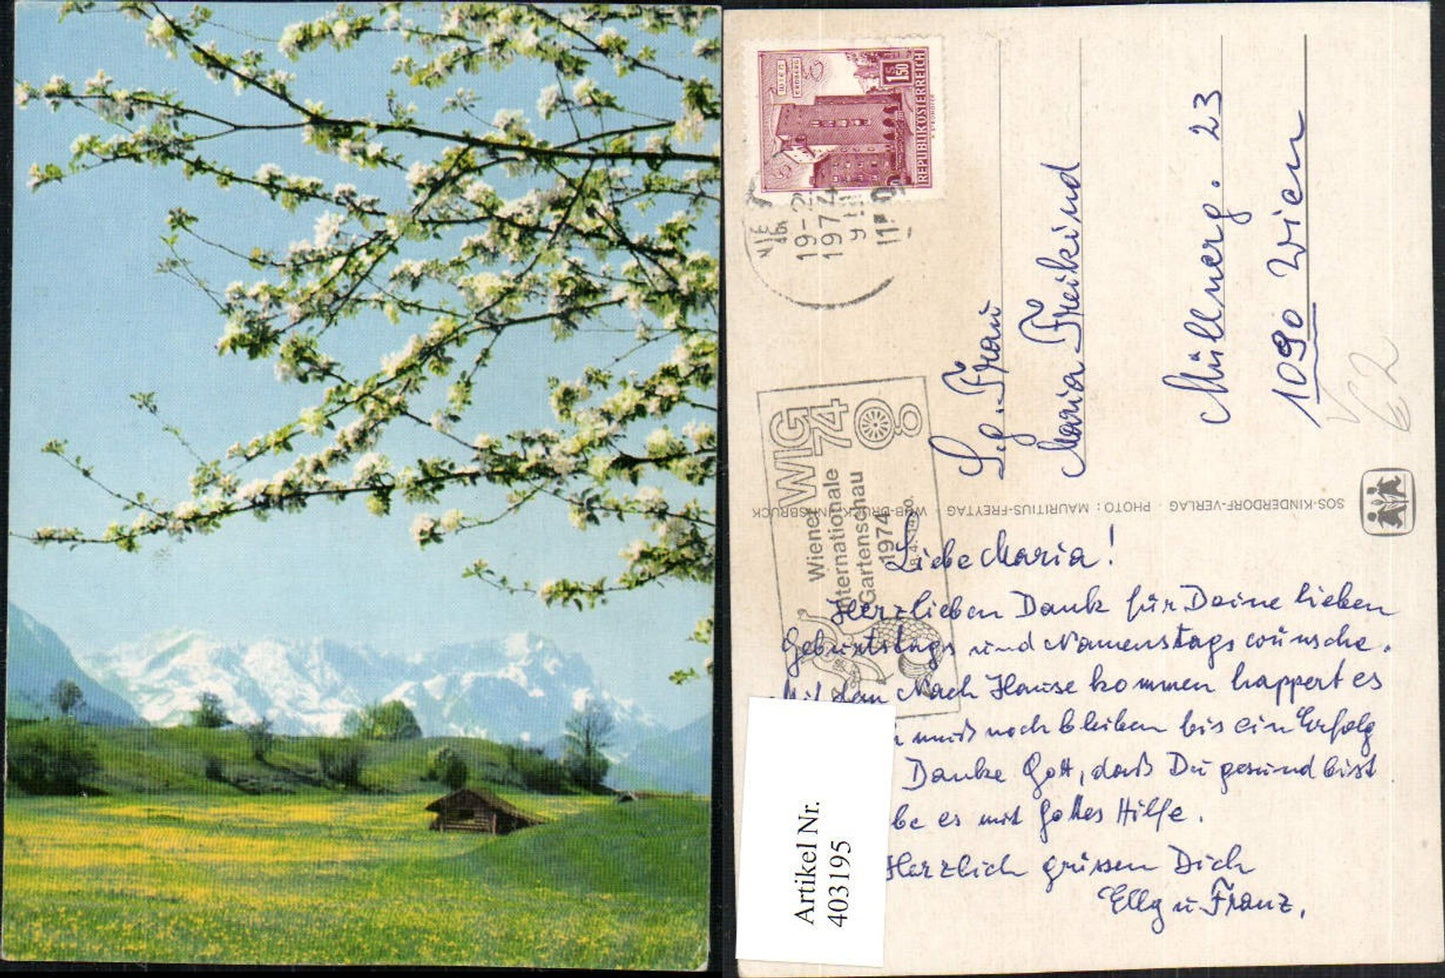 WIEN
ERDBERG
S 1.50
REPUBLIK ÖSTERREICH
19-2
1974
WIG
74
Wiener
Internationale
Gartenschau
1974
Sg. Frau
Maria Freikind
Müllnerg. 23
1090 Wien
62
SOS-KINDERDORF-VERLAG · PHOTO: MAURITIUS-FREYTAG WUB-DRUCK INNSBRUCK
Liebe Maria!
Herzlieben Dank für Deine lieben
Geburtstags und Namenstagswünsche.
Mit dem Nach Hause kommen happert es
muß noch bleiben bis ein Erfolg
Danke Gott, daß Du gesund bist
be es mit Gottes Hilfe.
Herzlich grüssen Dich
Elly u Franz.
Artikel Nr.
403195